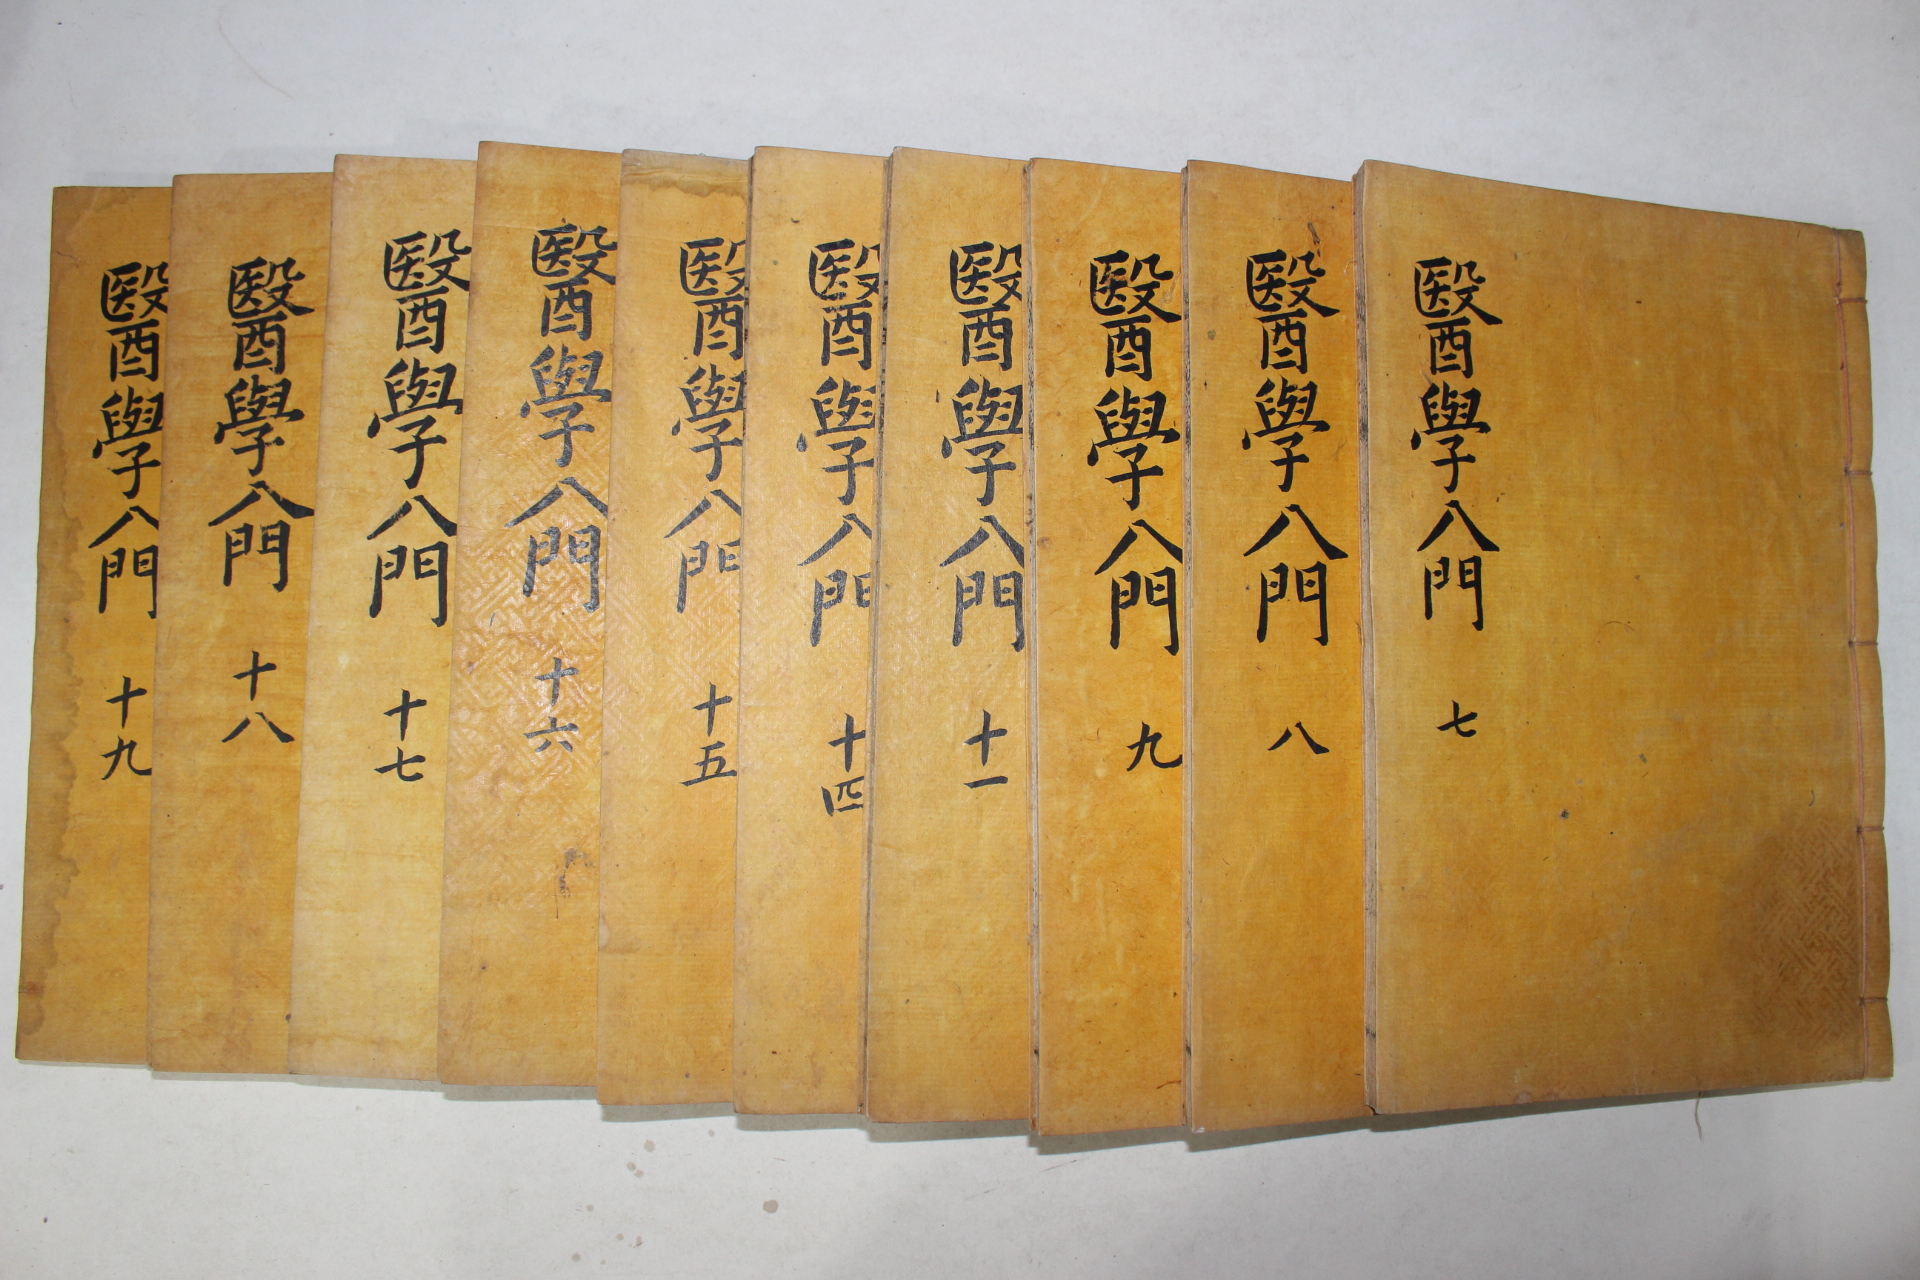 醫學入門 七
醫學入門 八
醫學入門 九
醫學入門 十一
醫學入門 十四
醫學入門 十五
醫學入門 十六
醫學入門 十七
醫學入門 十八
醫學入門 十九